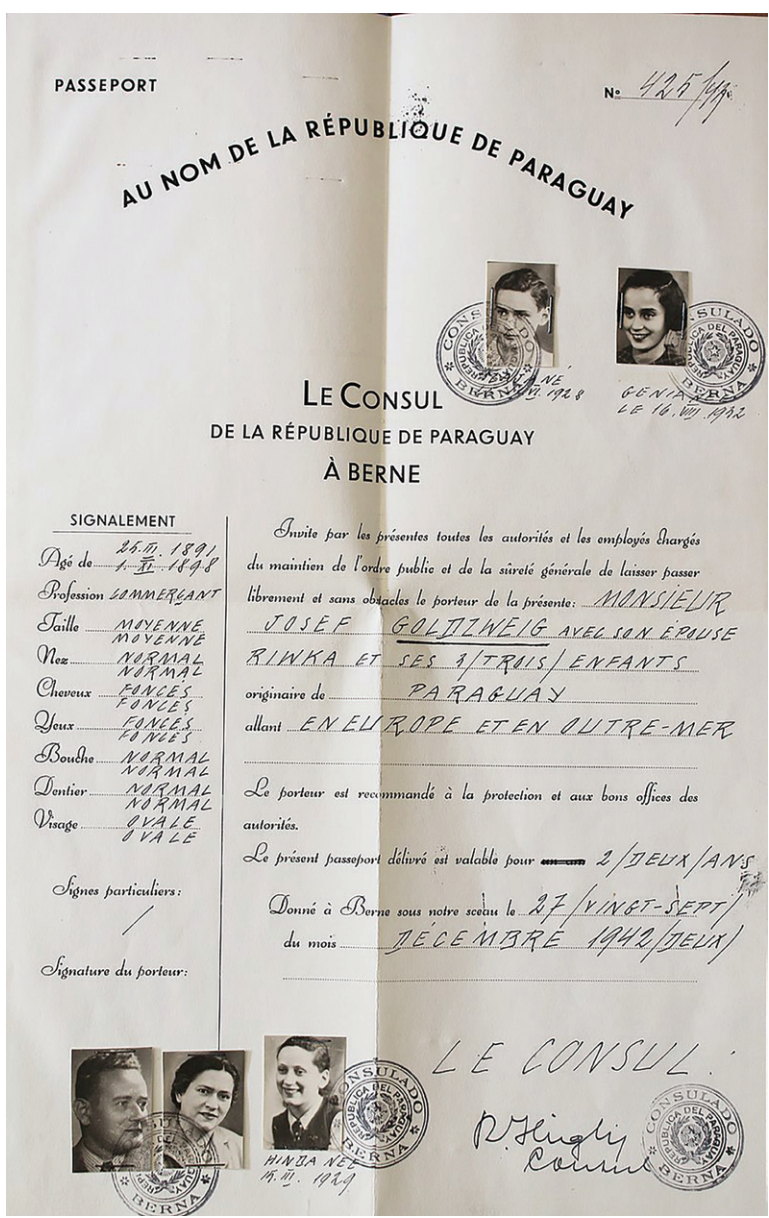 PASSEPORT
Nº 425/42
AU NOM DE LA RÉPUBLIQUE DE PARAGUAY
CONSULADO
REPUBLICA DEL PARAGUAY
BERNA
CONSULADO
REPUBLICA DEL PARAGUAY
BERNA
NÉ
VI. 1928
GENIA
LE 16. VIII. 1932
LE CONSUL
DE LA RÉPUBLIQUE DE PARAGUAY
À BERNE
SIGNALEMENT
Agé de 25.III.1891
1.XI.1898
Profession COMMERÇANT
Taille MOYENNE
MOYENNE
Nez NORMAL
NORMAL
Cheveux FONCES
FONCES
Yeux FONCES
FONCES
Bouche NORMAL
NORMAL
Dentier NORMAL
NORMAL
Visage OVALE
OVALE
Signes particuliers:
/
Signature du porteur:
Invite par les présentes toutes les autorités et les employés chargés
du maintien de l'ordre public et de la sûreté générale de laisser passer
librement et sans obstacles le porteur de la présente: MONSIEUR
JOSEF GOLDZWEIG AVEC SON ÉPOUSE
RIWKA ET SES 3/TROIS/ ENFANTS
originaire de PARAGUAY
allant EN EUROPE ET EN OUTRE-MER
Le porteur est recommandé à la protection et aux bons offices des
autorités.
Le présent passeport délivré est valable pour un an 2/DEUX/ANS
Donné à Berne sous notre sceau le 27/VINGT-SEPT/
du mois DÉCEMBRE 1942/DEUX/
LE CONSUL:
R. Hügli
Consul
CONSULADO
REPUBLICA DEL PARAGUAY
BERNA
HINDA NÉE
15.III.1929
CONSULADO
REPUBLICA DEL PARAGUAY
BERNA
CONSULADO
REPUBLICA DEL PARAGUAY
BERNA